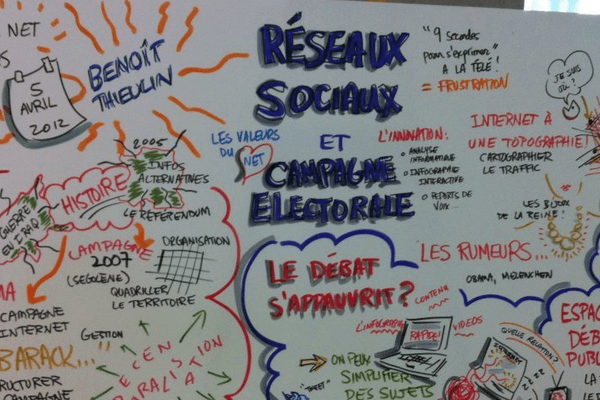 NET
5
AVRIL
2012
BENOÎT
THIEULIN
RÉSEAUX
SOCIAUX
ET
CAMPAGNE
ELECTORALE
"9 secondes
pour s'exprimer"
À LA TÉLÉ!
= FRUSTRATION
JE SUIS
INTERNET À
UNE TOPOGRAPHIE!
CARTOGRAPHIER
LE TRAFFIC
LES VALEURS
DU
NET
L'INNOVATION:
ANALYSE
INFOGRAPHIE
INTERACTIVE
REPORTS DE
VOIX...
2005
INFOS
ALTERNATIVES
LE RÉFERENDUM
HISTOIRE
GUERRE
EN IRAQ
CAMPAGNE
2007
(SEGOLÈNE)
ORGANISATION
QUADRILLER
LE TERRITOIRE
CAMPAGNE
INTERNET
GESTION
BARACK..."
STRUCTURER
CAMPAGNE
LE DÉBAT
S'APPAUVRIT?
LES BIJOUX
DE LA REINE!
LES RUMEURS...
OBAMA, MELENCHON
CONTENU
VIDEOS
RAPPORT
ON PEUX
SIMPLIFIER
DES SUJETS
"TWEET"
QUELLE RELATION?
ESPAC
DÉB
PUBL